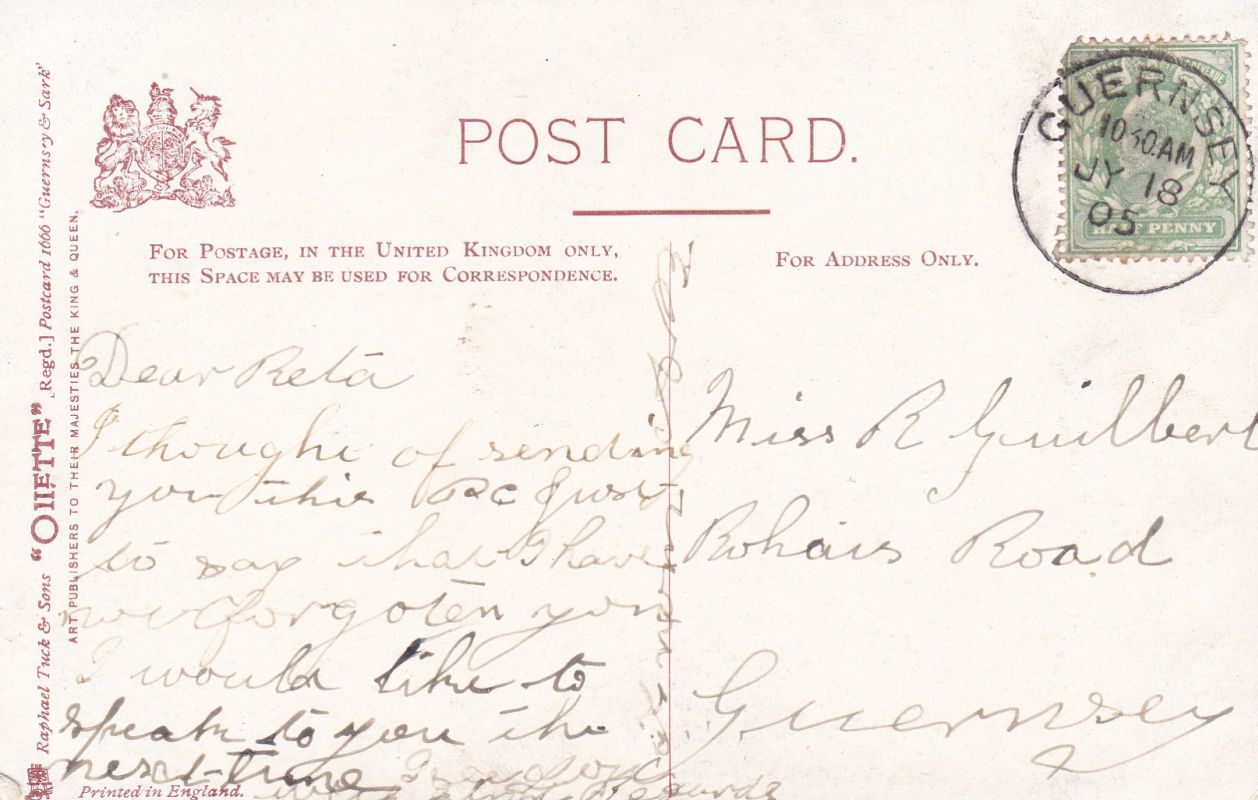 POST CARD.
FOR POSTAGE, IN THE UNITED KINGDOM ONLY,
THIS SPACE MAY BE USED FOR CORRESPONDENCE.
FOR ADDRESS ONLY.
GUERNSEY
10.30.AM
JY 18
05
HALF PENNY
Raphael Tuck & Sons "OILETTE" [Regd.] Postcard 1666 "Guernsey & Sark"
ART PUBLISHERS TO THEIR MAJESTIES THE KING & QUEEN.
Dear Reta
I thought of sending
you this P C Just
to say that I have
not forgoten you
I would like to
speak to you the
next time I see you
with kind Regards
Miss R Guilbert
Rohais Road
Guernsey
Printed in England.